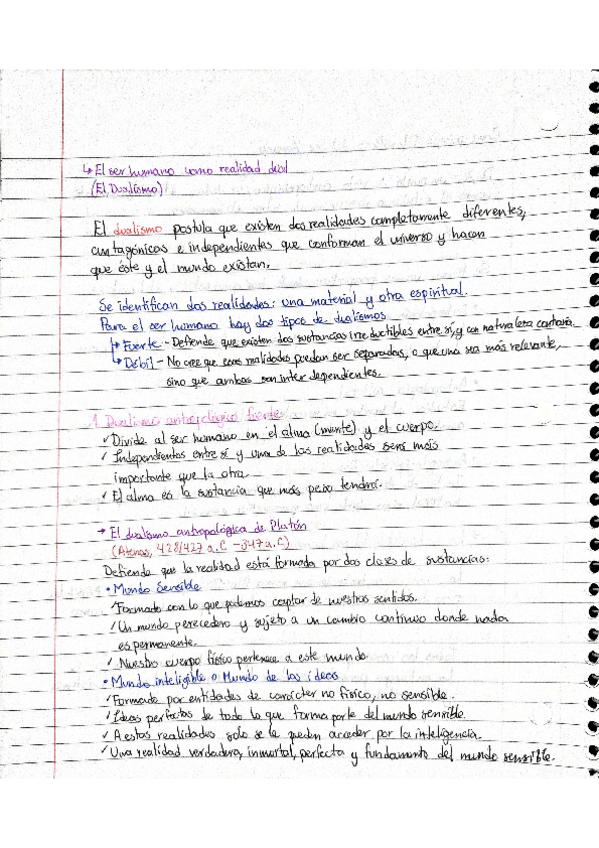 ↳ El ser humano como realidad dual
(El Dualismo)
El dualismo postula que existen dos realidades completamente diferentes,
antagónicas e independientes que conforman el universo y hacen
que éste y el mundo existan.
Se identifican dos realidades: una material y otra espiritual.
Para el ser humano hay dos tipos de dualismos
↳ Fuerte - Defiende que existen dos sustancias irreductibles entre sí, y con naturaleza contraria.
↳ Débil - No cree que esas realidades puedan ser separadas, o que una sea más relevante,
sino que ambas son interdependientes.
1. Dualismo antropológico fuerte
✓ Divide al ser humano en el alma (mente) y el cuerpo.
✓ Independientes entre sí y una de las realidades será más
importante que la otra.
✓ El alma es la sustancia que más peso tendrá.
→ El dualismo antropológico de Platón
(Atenas, 428/427 a.C - 347 a.C)
Defiende que la realidad está formada por dos clases de sustancias:
• Mundo Sensible
✓ Formado con lo que podemos captar de nuestros sentidos.
✓ Un mundo perecedero y sujeto a un cambio continuo donde nada
es permanente.
✓ Nuestro cuerpo físico pertenece a este mundo
• Mundo inteligible o Mundo de las ideas
✓ Formado por entidades de carácter no físico, no sensible.
✓ Ideas perfectas de todo lo que forma parte del mundo sensible.
✓ A estas realidades solo se le pueden acceder por la inteligencia.
✓ Una realidad verdadera, inmortal, perfecta y fundamento del mundo sensible.